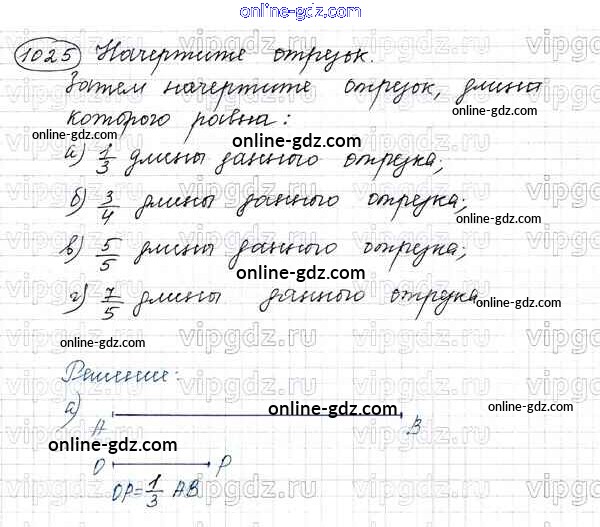 online-gdz.com
1025 Начертите отрезок.
Затем начертите отрезок, длина
которого равна:
online-gdz.com
online-gdz.com
а) 1/3 длины данного отрезка;
б) 3/4 длины данного отрезка;
online-gdz.com
в) 5/5 длины данного отрезка;
online-gdz.com
г) 7/5 длины данного отрезка
online-gdz.com
online-gdz.com
vipgdz.ru
Решение:
а)
A B
online-gdz.com
online-gdz.com
online-gdz.com
O P
OP=1/3 AB